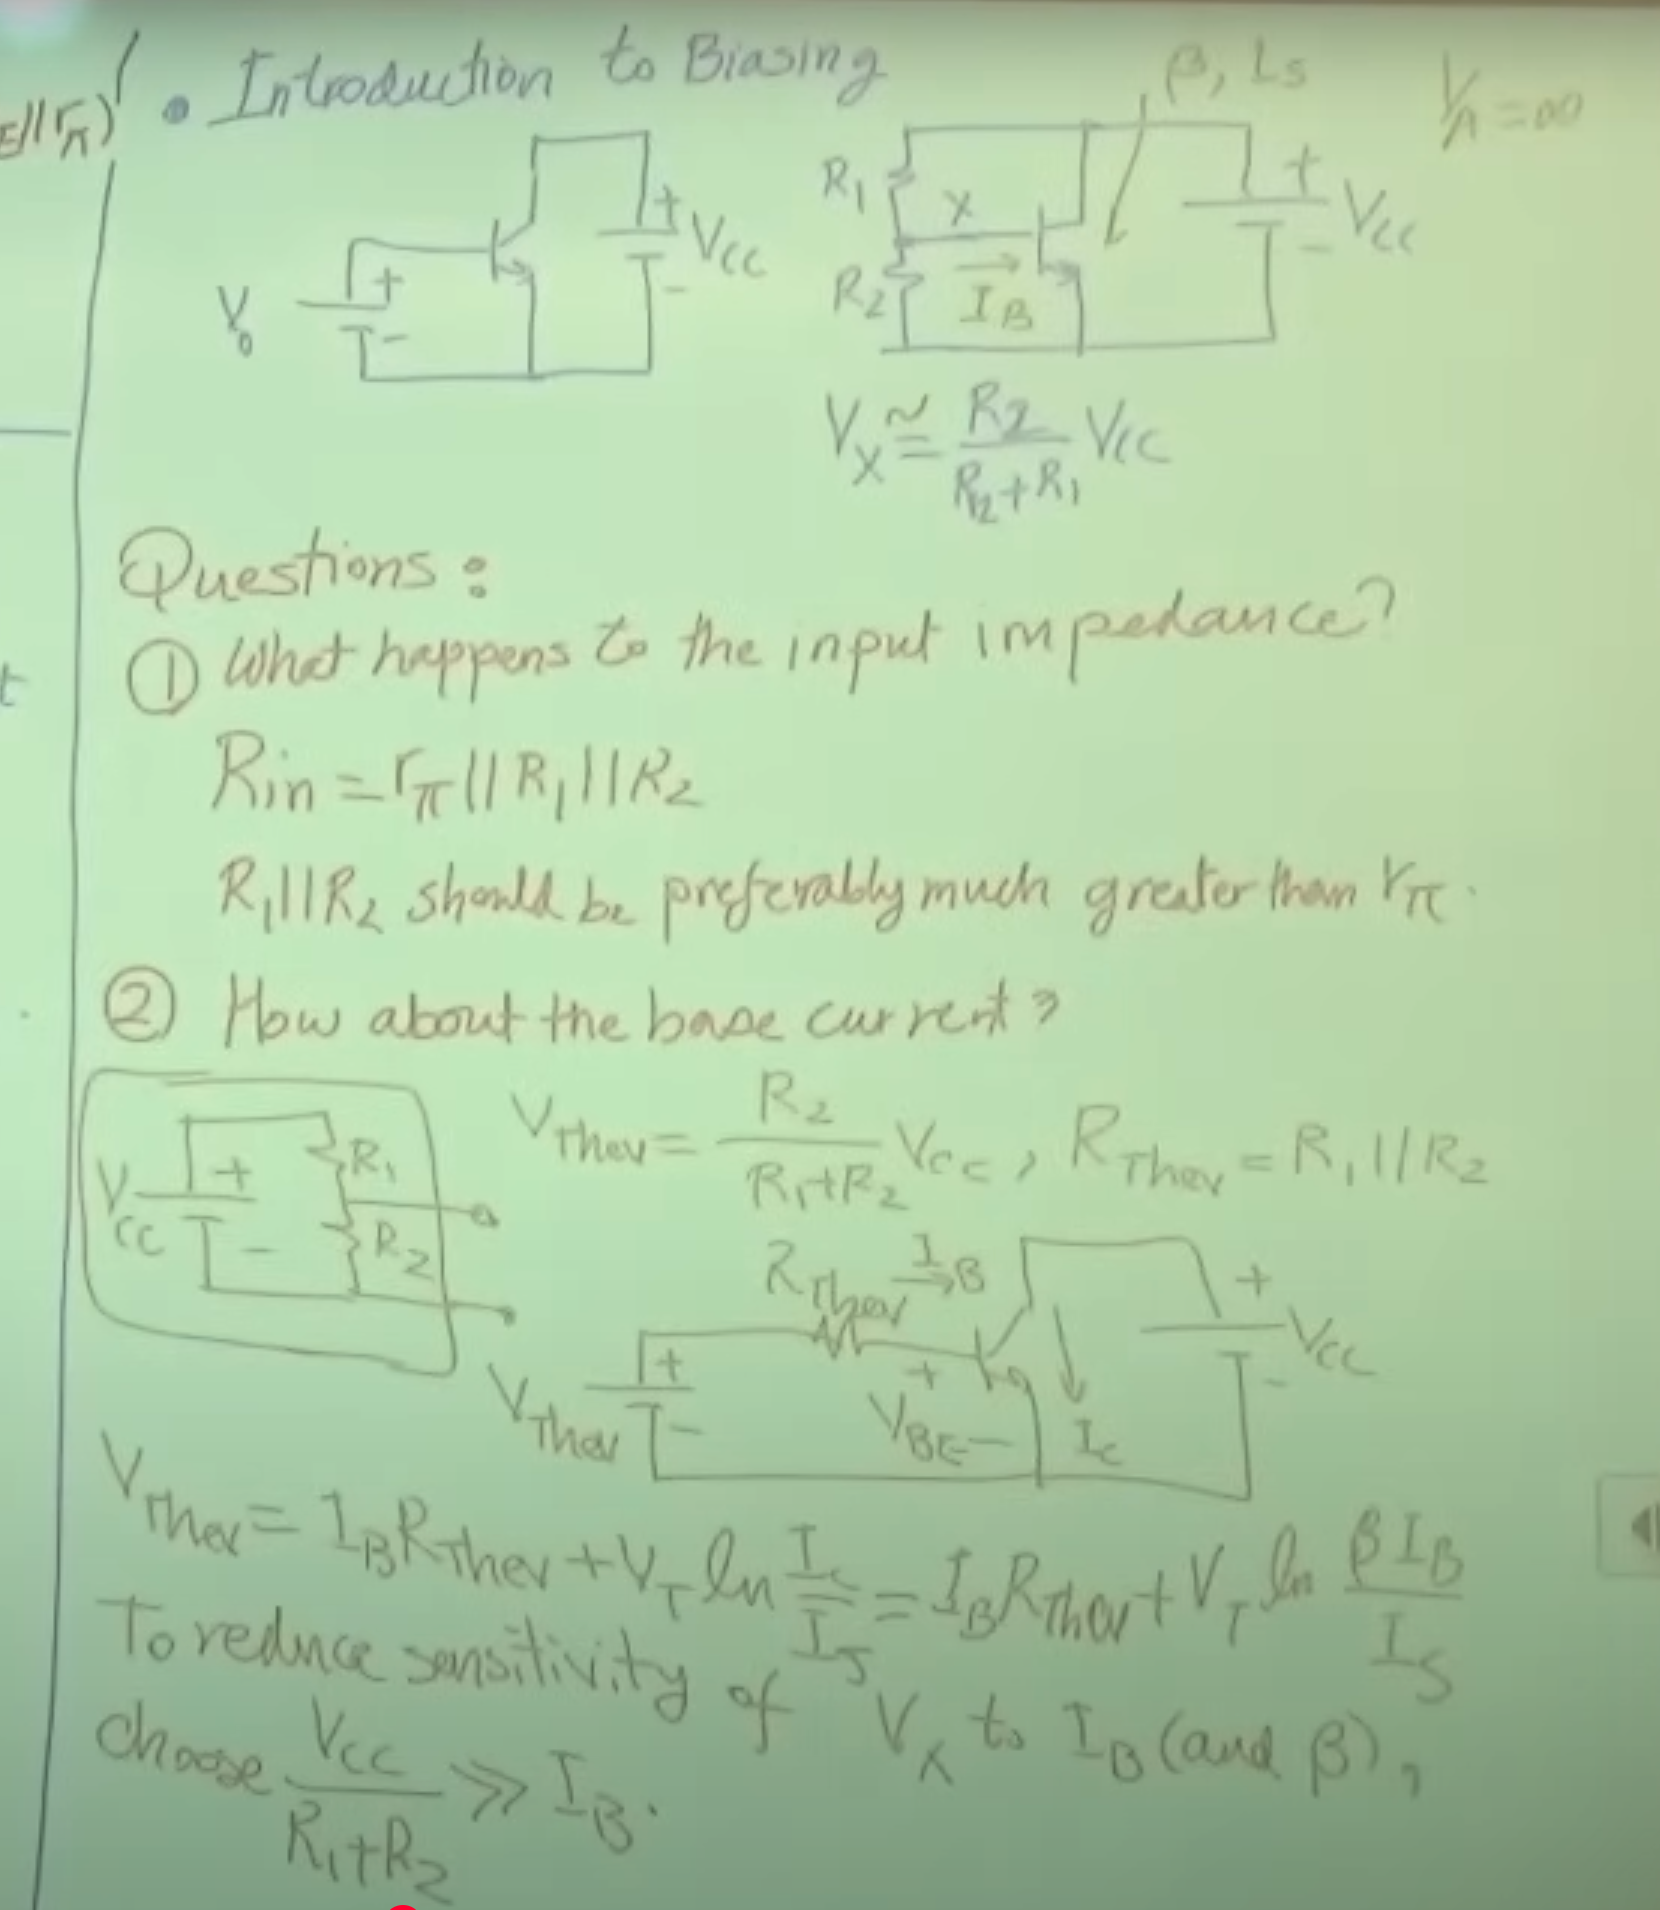 E||rπ)
• Introduction to Biasing
β, Is
VA = ∞
V0
+
-
+
VCC
-
R1
X
R2
IB
+
VCC
-
VX ≅ R2/(R2+R1) VCC
Questions :
① What happens to the input impedance?
Rin = rπ || R1 || R2
R1||R2 should be preferably much greater than rπ.
② How about the base current?
VCC
+
-
R1
R2
VThev = R2/(R1+R2) VCC, RThev = R1||R2
RThev
IB
VThev
+
-
+
VBE -
IC
+
VCC
-
VThev = IB RThev + VT ln IC/IS = IB RThev + VT ln βIB/IS
To reduce sensitivity of VX to IB (and β),
choose VCC/(R1+R2) ≫ IB.